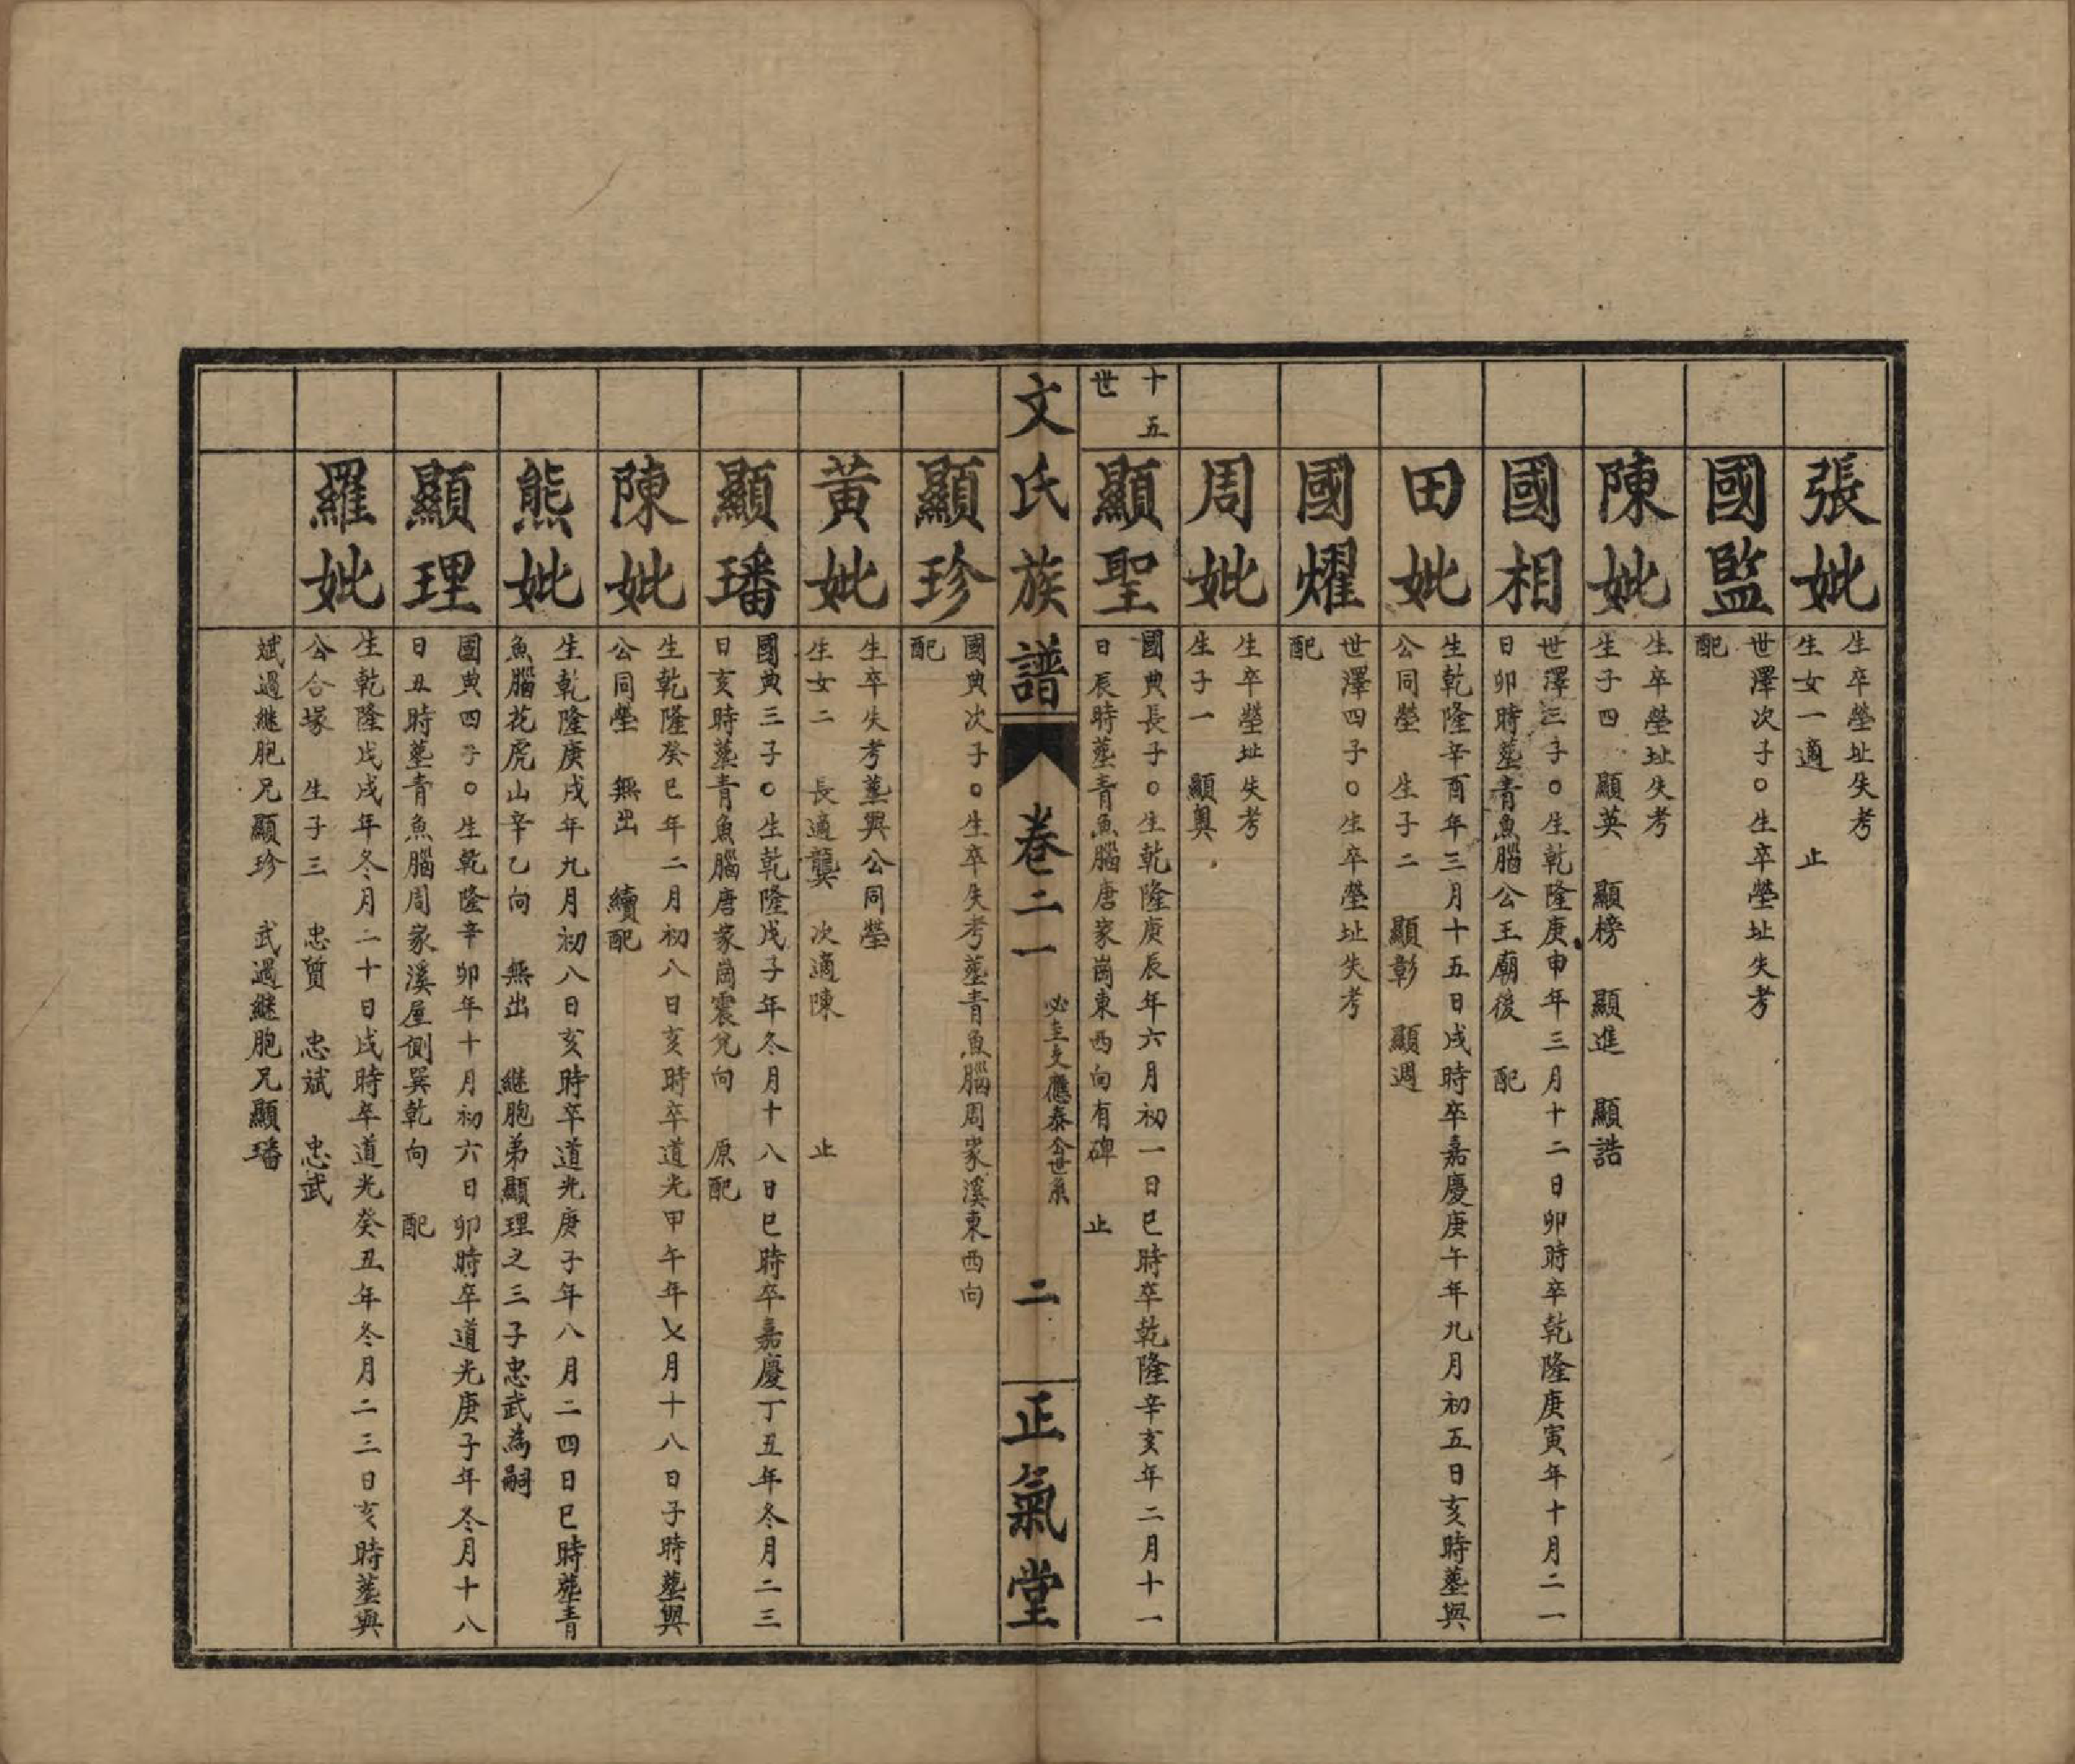 張妣
生卒塋址失考
生女一適　止
國監
世澤次子○生卒塋址失考
配
陳妣
生卒塋址失考
生子四　顯英　顯榜　顯進　顯誥
國相
世澤三子○生乾隆庚申年三月十二日卯時卒乾隆庚寅年十月二一
日卯時塟青魚腦公王廟後　配
田妣
生乾隆辛酉年三月十五日戌時卒嘉慶庚午年九月初五日亥時塟與
公同塋　生子二　顯彰　顯週
國燿
世澤四子○生卒塋址失考
配
周妣
生卒塋址失考
生子一　顯與
十五
世
顯聖
國典長子○生乾隆庚辰年六月初一日巳時卒乾隆辛亥年二月十一
日辰時塟青魚腦唐家崗東西向有碑　止
文氏族譜
卷二一
必主文應泰公世系
二
正氣堂
顯珍
國典次子○生卒失考塟青魚腦周家溪東西向
配
黃妣
生卒失考塟與公同塋
生女二　長適龔　次適陳　止
顯璠
國典三子○生乾隆戊子年冬月十八日巳時卒嘉慶丁丑年冬月二三
日亥時塟青魚腦唐家崗震兌向　原配
陳妣
生乾隆癸巳年二月初八日亥時卒道光甲午年乂月十八日子時塟與
公同塋　無出　續配
熊妣
生乾隆庚戌年九月初八日亥時卒道光庚子年八月二四日巳時塟青
魚腦花虎山辛乙向　無出　継胞弟顯理之三子忠武為嗣
顯理
國典四子○生乾隆辛卯年十月初六日卯時卒道光庚子年冬月十八
日丑時塟青魚腦周家溪屋側巽乾向　配
羅妣
生乾隆戊戌年冬月二十日戌時卒道光癸丑年冬月二三日亥時塟與
公合塚　生子三　忠質　忠斌　忠武
斌過継胞兄顯珍　武過継胞兄顯璠